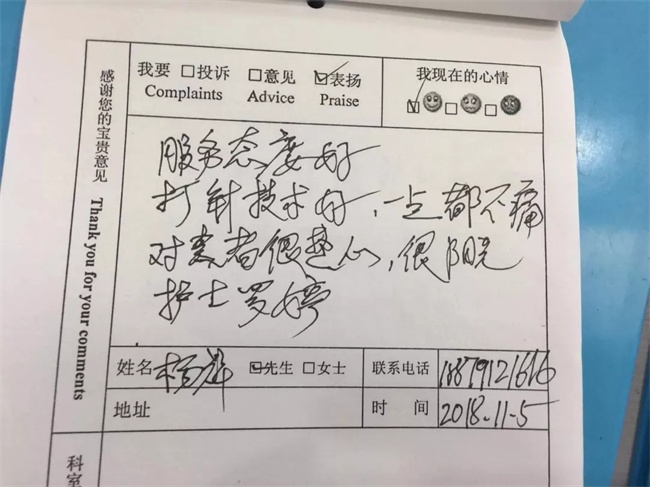 感谢您的宝贵意见 Thank you for your comments
我要 □投诉 □意见 ☑表扬
Complaints Advice Praise
我现在的心情
服务态度好
打针技术好，一点都不痛
对患者很热心，很阳光
护士罗婷
姓名 杨 ☑先生 □女士 联系电话
地址 时间 2018.11-5
科室